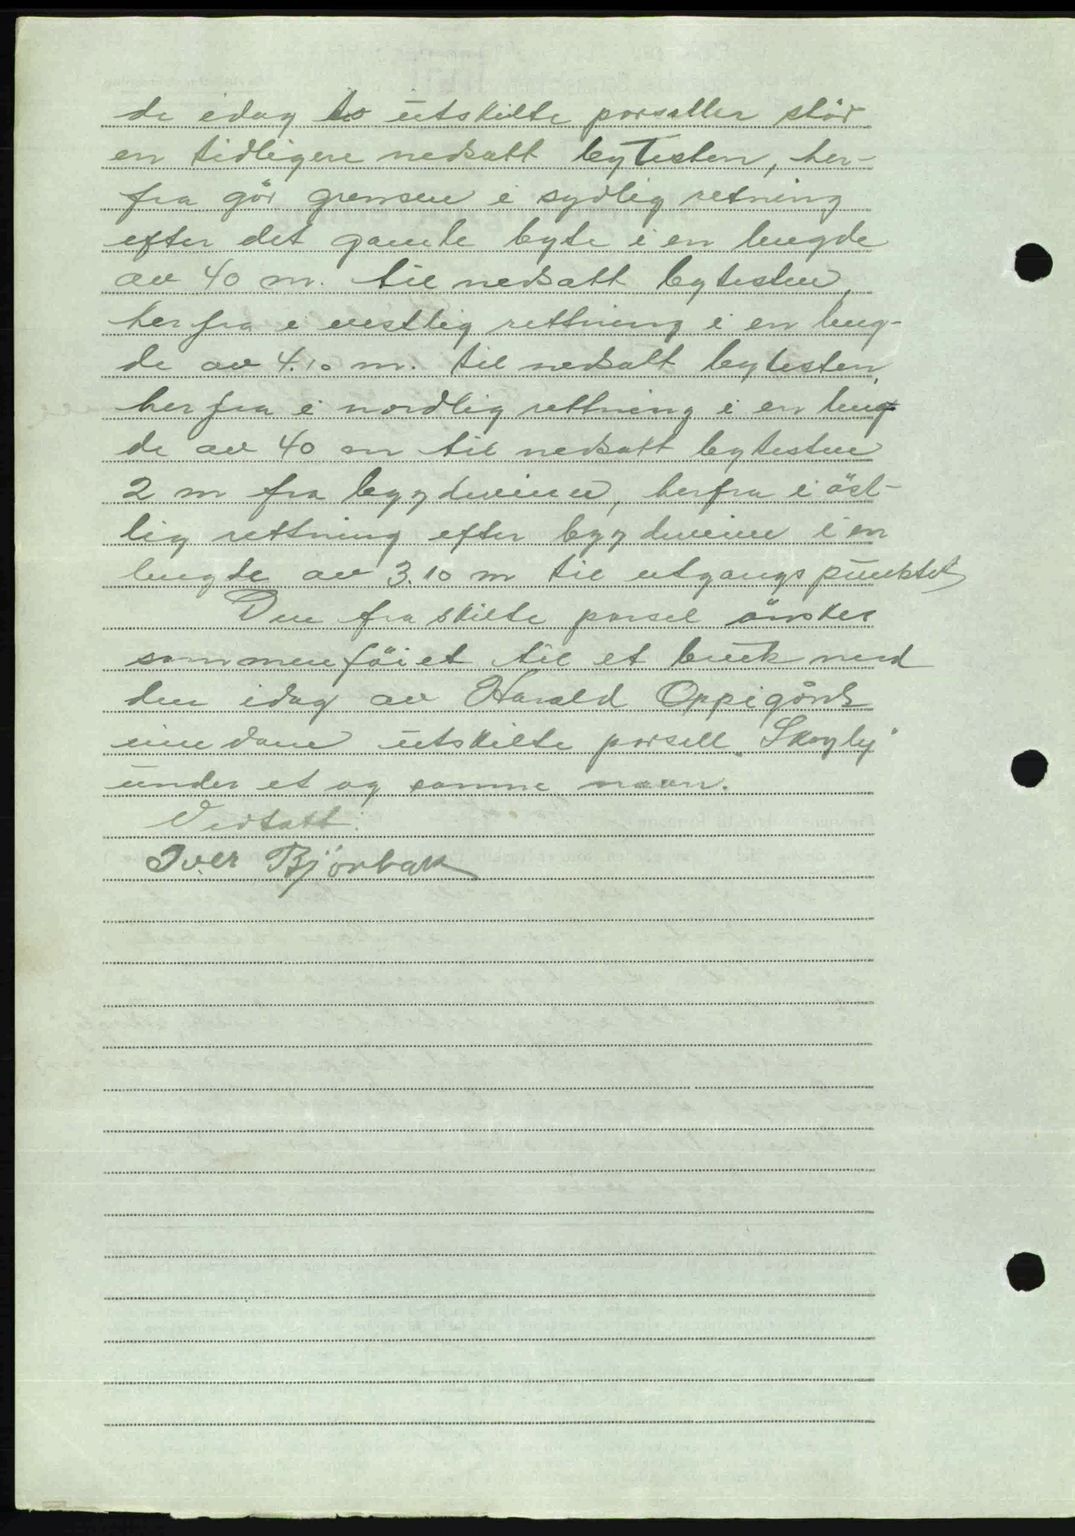 de idag to utskilte parseller står
en tidligere nedsatt bytesten, her-
fra går grensen i sydlig retning
efter det gamle byte i en lengde
av 40 m. til nedsatt bytesten,
herfra i vestlig rettning i en leng-
de av 4.10 m. til nedsatt bytesten,
herfra i nordlig rettning i en leng-
de av 40 m til nedsatt bytesten
2 m fra bygdeveien, herfra i öst-
lig rettning efter bygdeveien i en
lengde av 3.10 m til utgangspunktet
Den fraskilte parsel önskes
sammenföiet til et bruk med
den idag av Harald Oppigårds
eiendom utskilte parsell "Skogly"
under et og samme navn.
Vedtatt.
Iver Björbak